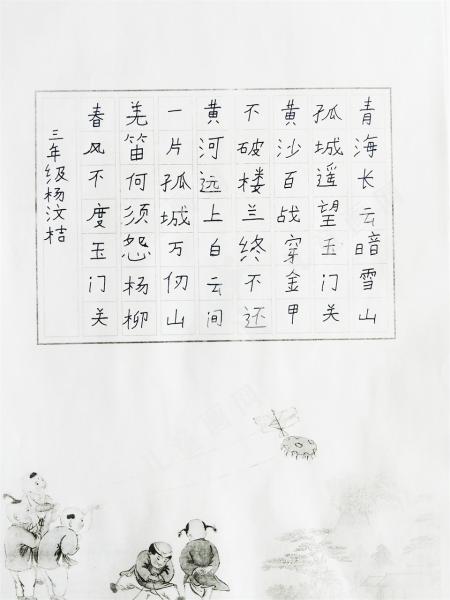 青海长云暗雪山
孤城遥望玉门关
黄沙百战穿金甲
不破楼兰终不还
黄河远上白云间
一片孤城万仞山
羌笛何须怨杨柳
春风不度玉门关
三年级杨汶桔